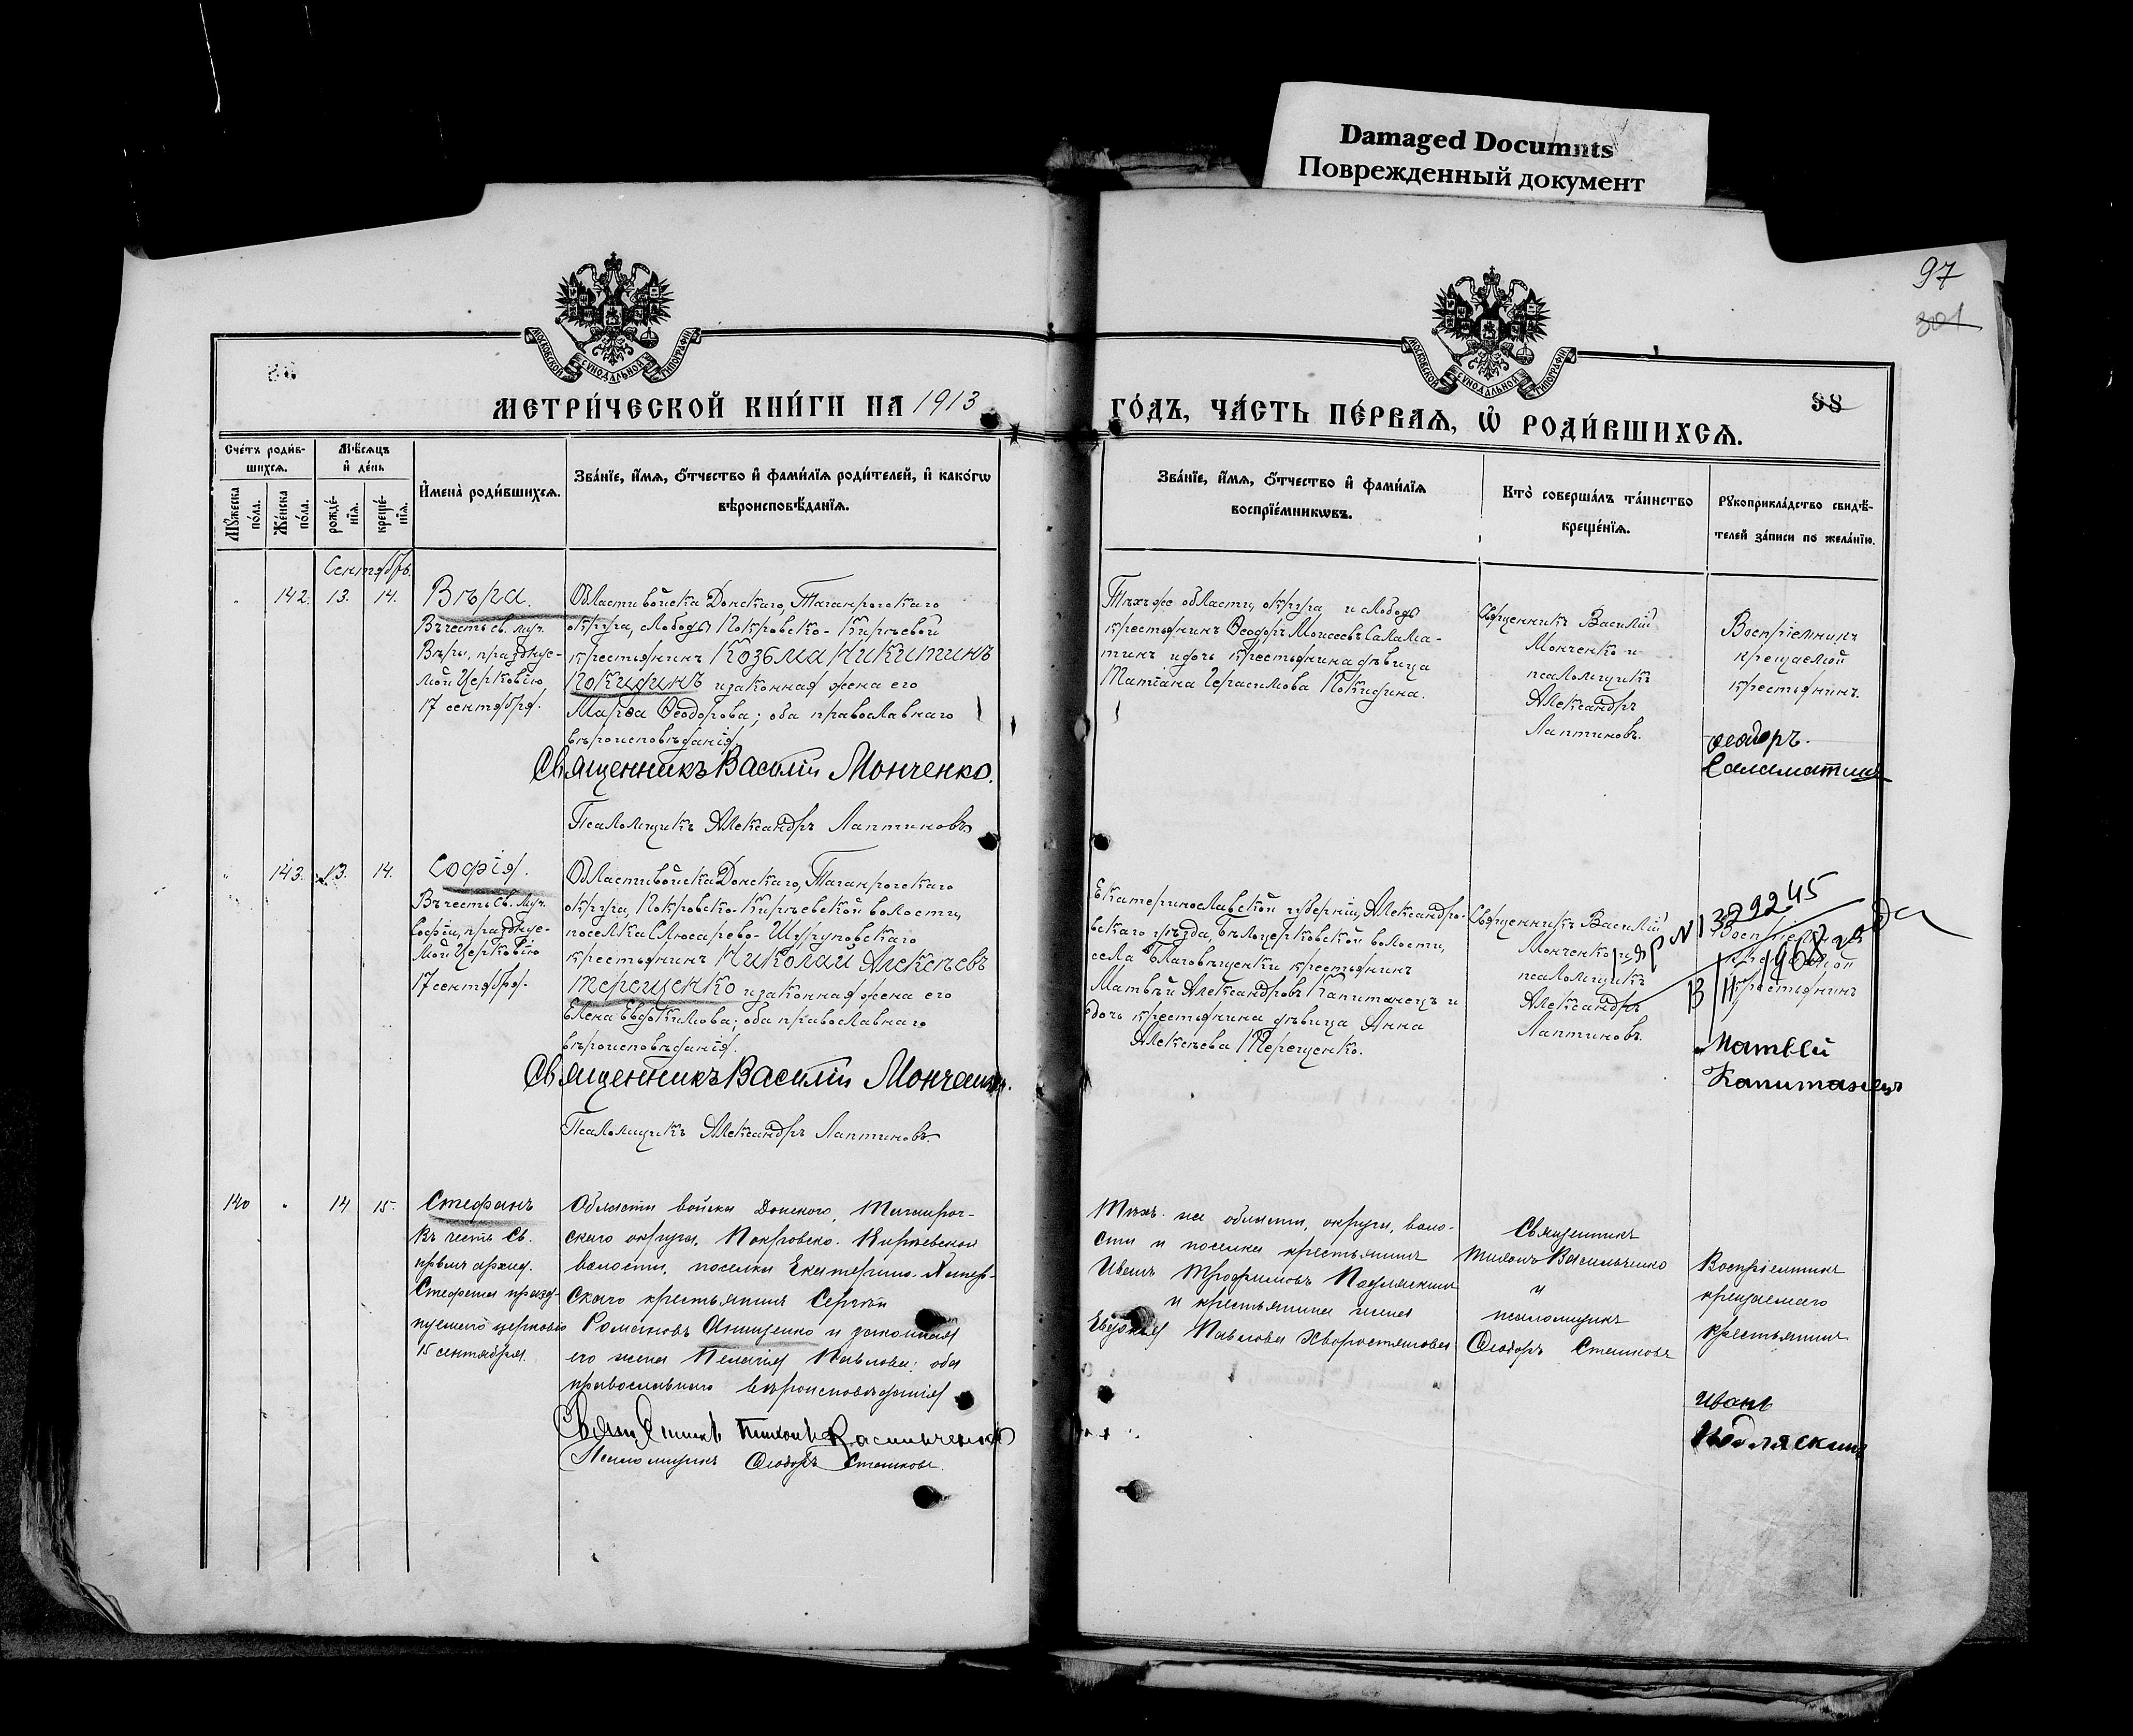 Damaged Documnts
Поврежденный документ
97
301
98
МОСКОВСКОЙ СУНОДАЛЬНОЙ ТИПОГРАФІИ
МОСКОВСКОЙ СУНОДАЛЬНОЙ ТИПОГРАФІИ
МЕТРИ́ЧЕСКОЙ КНИ́ГИ НА 1913
ГО́ДЪ, ЧА́СТЬ ПЕ́РВАѦ, Ѡ҆ РОДИ́ВШИХСѦ.
Сче́тъ роди́в-
шихсѧ.
Мꙋ́жеска
по́ла.
Же́нска
по́ла.
Мѣ́сѧцъ
и҆ де́нь
рожде́-
нїѧ.
креще́-
нїѧ.
И҆мена̀ роди́вшихсѧ.
Зва́нїе, и҆́мѧ, ѻ҆́тчество и҆ фами́лїѧ роди́телей, и҆ како́гѡ
вѣроисповѣ́данїѧ.
Зва́нїе, и҆́мѧ, ѻ҆́тчество и҆ фами́лїѧ
воспрїе́мникѡвъ.
Кто̀ соверша́лъ та́инство
креще́нїѧ.
Рꙋкоприкла́дство свидѣ́-
телей за́писи по жела́нїю.
Сентябрь.
142. 13. 14.
Вѣра.
Въ честь св. муч.
Вѣры, празднуе-
мой Церковію
17 сентября.
Области войска Донскаго, Таганрогскаго
округа, слободы Покровско-Кирѣевой
крестьянинъ Козьма Никитинъ
Покидинъ и законная жена его
Марѳа Ѳеодорова; оба православнаго
вѣроисповѣданія
Священникъ Василій Монченко.
Псаломщикъ Александръ Лаптиновъ
Тѣхъ же области, округа и слободы
крестьянинъ Ѳеодоръ Моисеевъ Салама-
тинъ и дочь крестьянина дѣвица
Татіана Герасимова Покидина.
Священникъ Василій
Монченко и
псаломщикъ
Александръ
Лаптиновъ.
Воспріемникъ
крещаемой
крестьянинъ
Ѳеодоръ.
Саламатинъ
143. 13. 14.
Софія.
Въ честь Св. муч.
Софіи, празднуе-
мой Церковію
17 сентября.
Области войска Донскаго, Таганрогскаго
округа, Покровско-Кирѣевской волости,
поселка Слюсарево-
крестьянинъ Николай Алексѣевъ
Терещенко и законная жена его
Елена Евдокимова; оба православнаго
вѣроисповѣданія.
Священникъ Василій Монченко.
Псаломщикъ Александръ Лаптиновъ.
Екатеринославской губерніи, Александро-
вскаго уѣзда, Бѣлоцерковской волости,
села Благовѣщенки крестьянинъ
Матвѣй Александровъ Капитанецъ и
дочь крестьянина дѣвица Анна
Алексѣева Терещенко.
Священникъ Василій
Монченко и
псаломщикъ
Александръ
Лаптиновъ.
Воспріемникъ
крещаемой
крестьянинъ
Матвей
Капитанецъ
140 14 15.
Стефанъ
Въ честь Св.
првмч. архид.
Стефана празд-
нуемаго церковію
15 сентября.
Области войска Донского, Таганрог-
скаго округа, Покровско-Кирѣевской
волости, поселка Екатерино-
скаго крестьянинъ Сергѣй
Романовъ Онищенко и законная
его жена Пелагія Павлова; оба
православнаго вѣроисповѣданія
Священникъ Тихонъ Васильченко
Псаломщикъ Ѳеодоръ Сташковъ.
Тѣхъ же области, округа, воло-
сти и поселка крестьянинъ
Иванъ Трофимовъ Подляскинъ
и крестьянина жена
Евдокія Павлова Хворостянова
Священникъ
Тихонъ Васильченко
и
псаломщикъ
Ѳеодоръ Сташковъ
Воспріемникъ
крещаемаго
крестьянинъ
Иванъ
Подляскинъ